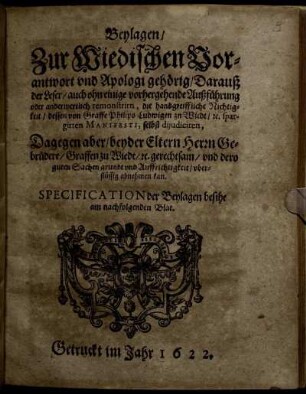 Beylagen/
Zur Wiedischen Vor-
antwort vnd Apologi gehörig/ Darauß
der Leser/ auch ohn einige vorhergehende Außführung
oder anderwertlich remonstriren, die handgreiffliche Nichtig-
keit/ dessen von Graffe Philips Ludwigen zu Wiedt/ ꝛc. spar-
girten MANIFESTI, selbst dijudiciren,
Dagegen aber/ beyder Eltern Herrn Ge-
brüdere/ Graffen zu Wiedt/ ꝛc. gerechtsam/ vnd dero
guten Sachen grundt vnd Auffrichtigkeit/ vber-
flüssig abnehmen kan.
SPECIFICATION der Beylagen besihe
am nachfolgenden Blat.
Getruckt im Jahr 1622.